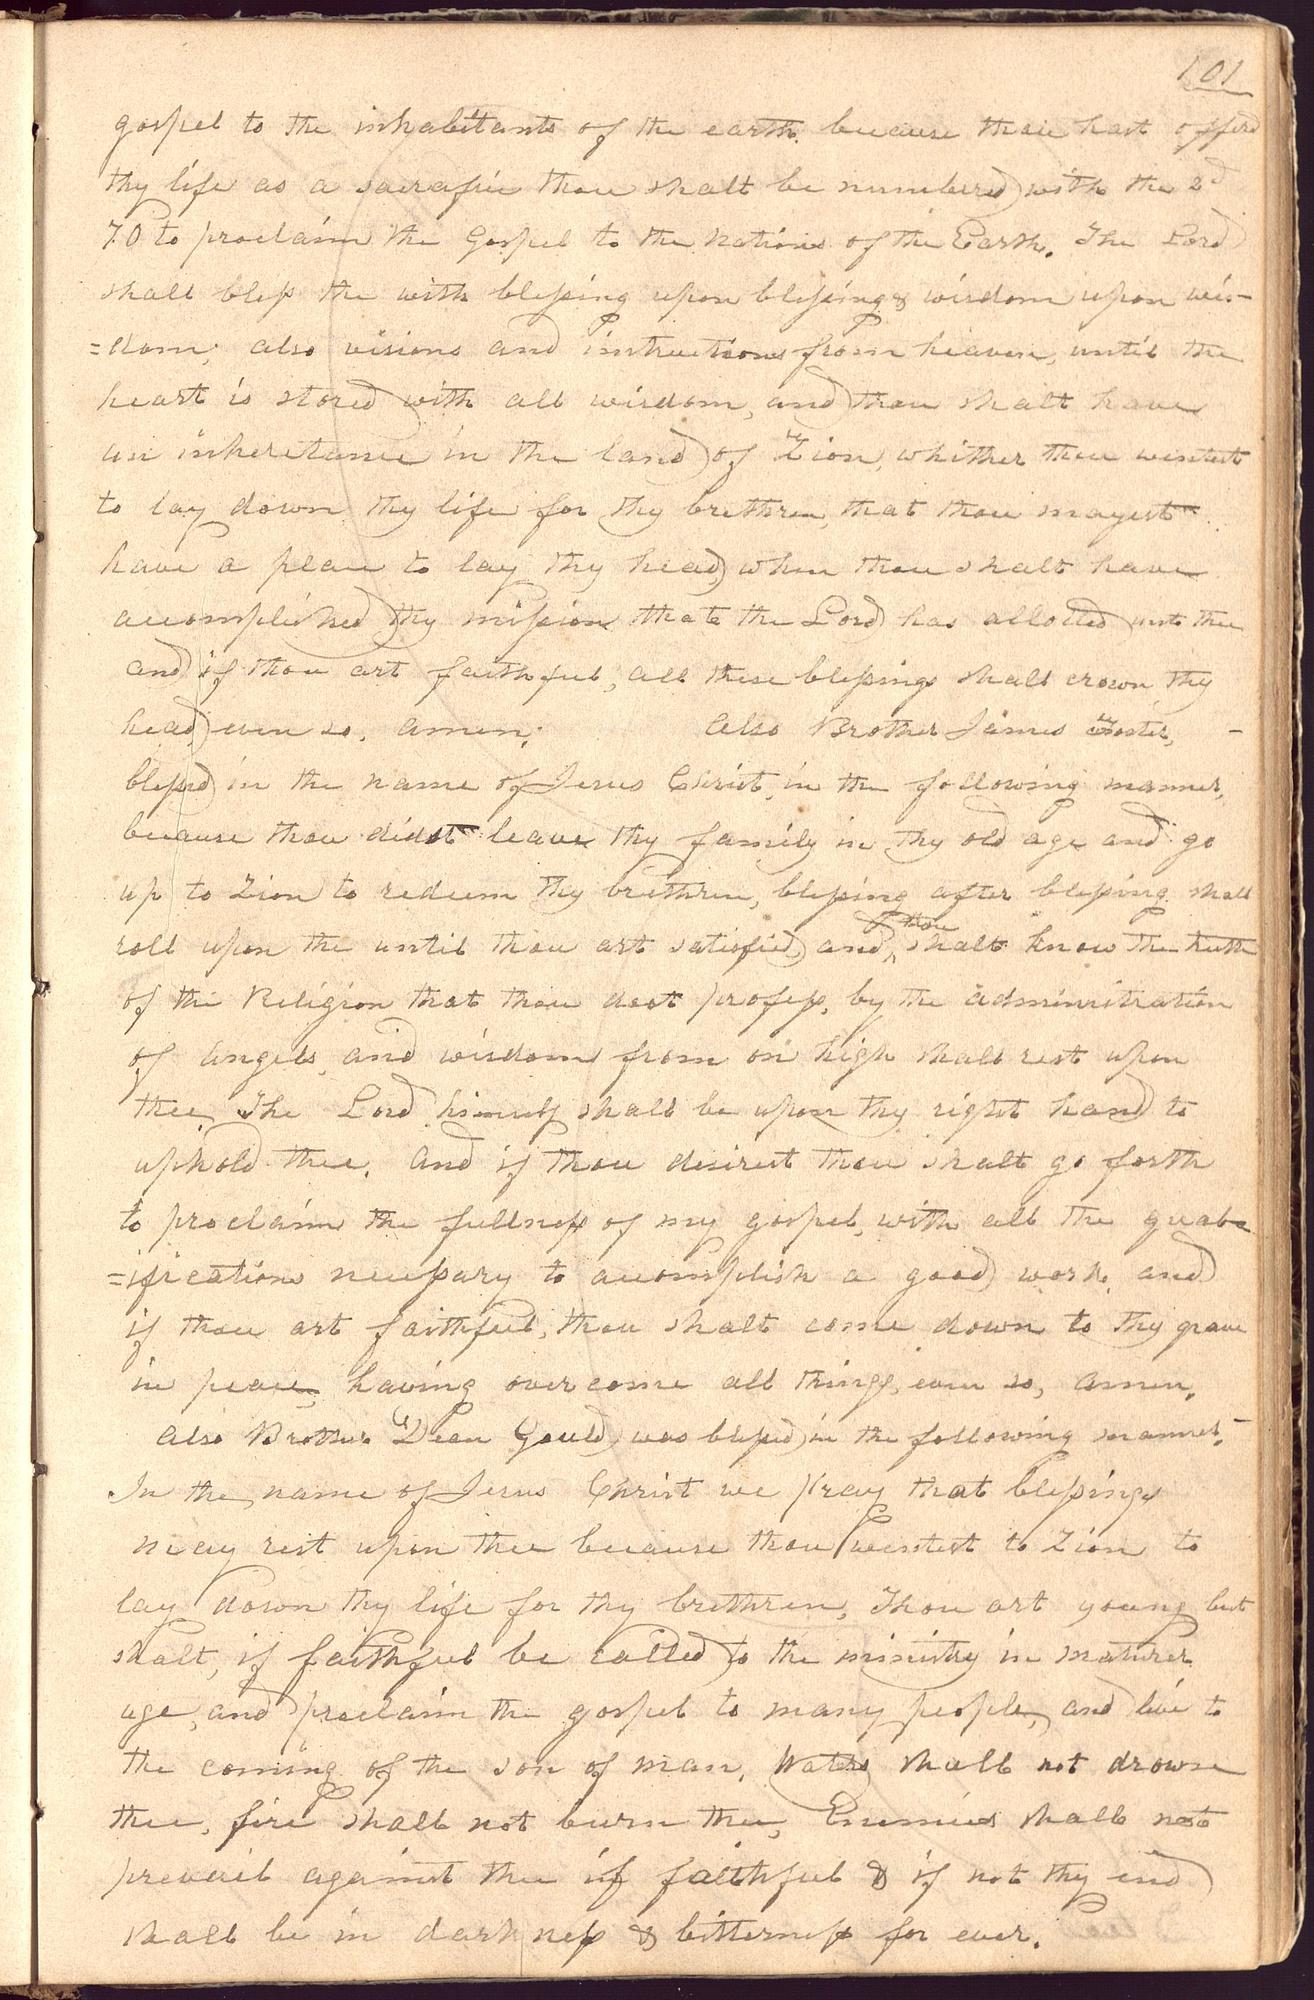 101
gospel to the inhabitants of the earth. because thou hast offerd
thy life as a sacrafice thou shalt be numbered with the 2d
70 to proclaim the Gospel to the Nations of the Earth. The Lord
shall bless the with blessing upon blessing & wisdom upon wis-
=dom; also visions and instructions from heaven, until the
heart is stored with all wisdom, and thou shalt have
an inheritance in the land of Zion, whither thou wentest
to lay down thy life for thy brethren, that thou mayest
have a place to lay thy head, when thou shalt have
accomplished thy mission that the Lord has allotted unto thee
and if thou art faithful, all these blessings shall crown thy
head even so, amen; also Brother James Foster, -
blessed in the name of Jesus Christ, in the following manner,
because thou didst leave thy family in thy old age and go
up to Zion to redeem thy brethren, blessing after blessing shall
roll upon the until thou art satisfied, and thou shalt know the truth
of the Religion that thou dost profess, by the administration
of angels, and wisdom from on high shall rest upon
thee, The Lord himself shall be upon thy right hand to
uphold thee. and if thou desirest thou shalt go forth
to proclaim the fullness of my gospel, with all the qual-
=ifications necessary to accomplish a good work, and
if thou art faithful, thou shalt come down to thy grave
in peace, having overcome all things, even so, amen.
also Brother Dean Gould, was blessed in the following manner.-
In the name of Jesus Christ we pray that blessings
may rest upon thee because thou wentest to Zion to
lay down thy life for thy brethren, Thou art young but
shalt, if faithful be called to the ministry in maturer
age, and proclaim the gospel to many people, and live to
the coming of the son of man, Waters shall not drown
thee, fire shall not burn thee, Enemies shall not
prevail against thee if faithful & if not thy end
shall be in darkness & bitterness for ever.